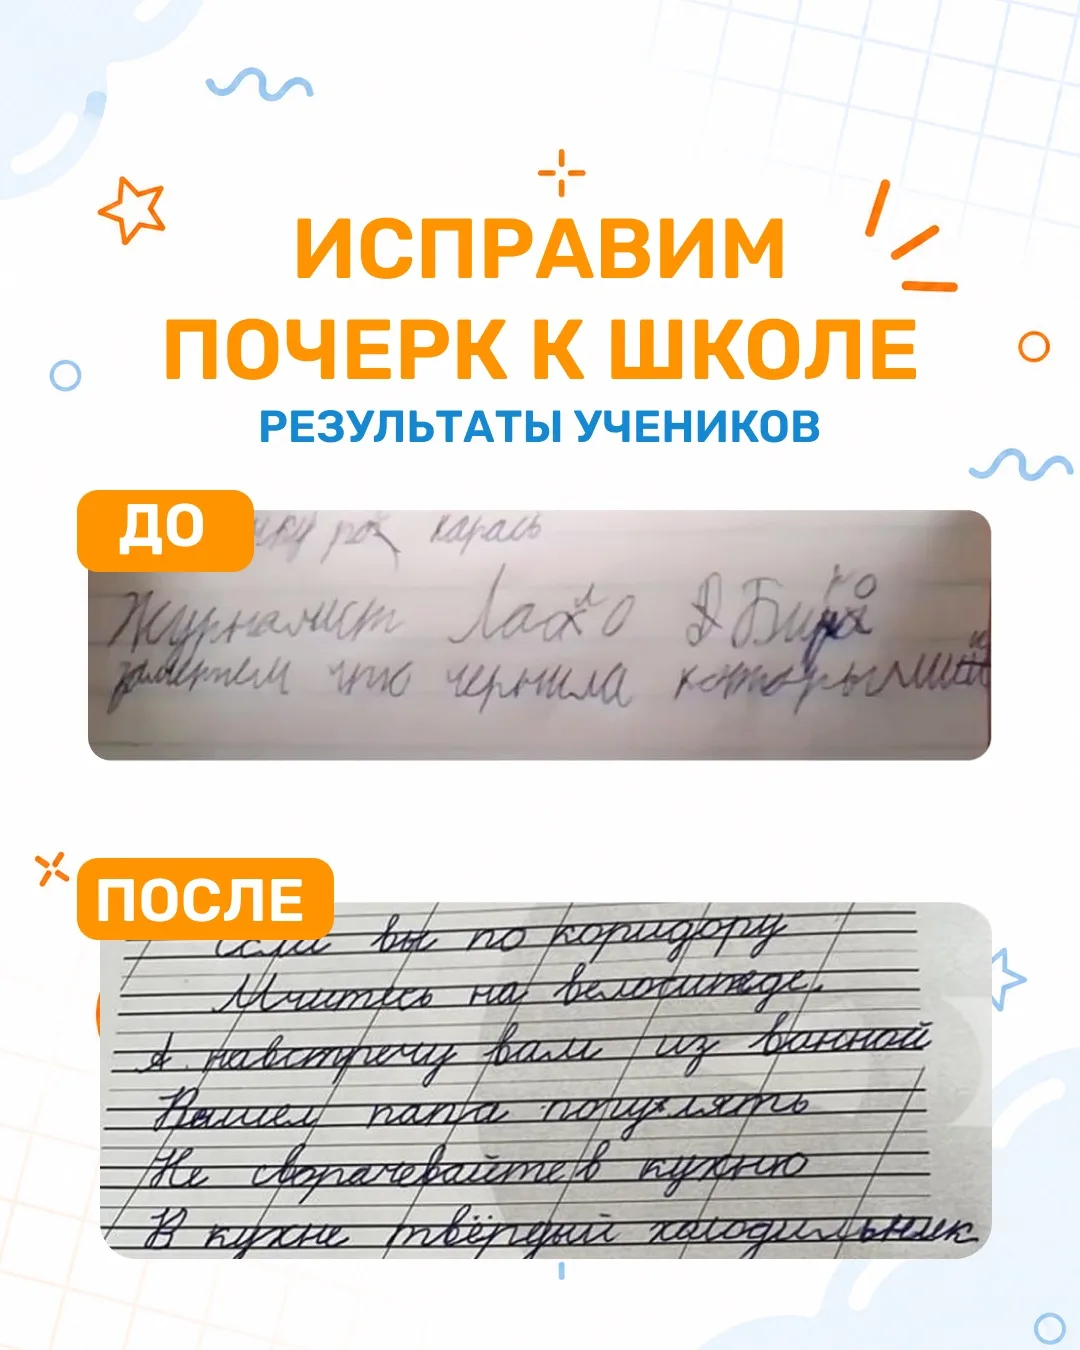 ИСПРАВИМ
ПОЧЕРК К ШКОЛЕ
РЕЗУЛЬТАТЫ УЧЕНИКОВ
ДО
карась
Журналист
заметтем что чернила которыми
ПОСЛЕ
Если вы по коридору
Мчитесь на велосипеде,
А навстречу вам из ванной
Вышел папа погулять
Не сворачевайте в кухню
В кухне твёрдый холодильник